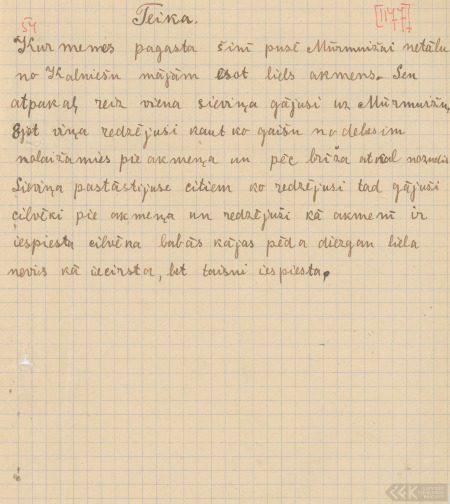 Teika.
54
[1177]
Kurmenes pagasta šinī pusē Mūrmuižai netālu
no Kalniešu mājām esot liels akmens. Sen
atpakaļ reiz viena sieviņa gājusi uz Mūrmuižu,
Ejot viņa redzējusi kaut ko gaišu no debesim
nolaižamies pie akmeņa un pēc brīža atkal nozudis
Sieviņa pastāstijuse citiem ko redzējusi tad gājuši
cilvēki pie akmeņa un redzējuši kā akmenī ir
iespiesta cilvēka babās kājas pēda diezgan liela
nevis kā iecirsta, bet taisni iespiesta.